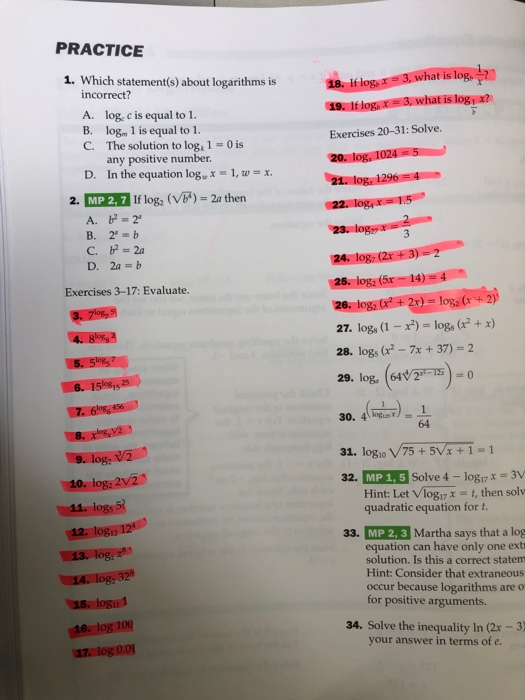 PRACTICE
1. Which statement(s) about logarithms is
incorrect?
A. log꜀ c is equal to 1.
B. logₘ 1 is equal to 1.
C. The solution to logₖ 1 = 0 is
any positive number.
D. In the equation log_w x = 1, w = x.
2. MP 2, 7 If log₂ (√b⁴) = 2a then
A. b² = 2ᵃ
B. 2ᵃ = b
C. b² = 2a
D. 2a = b
Exercises 3–17: Evaluate.
3. 7^(log₇ 9)
4.
5. 5^(log₅ 7)
6. 15^(log₁₅ 25)
7. 6^(log₆ 456)
8.
9. log₂ ∛2
10. log₂ 2√2
11. log₅
12. log₁₂ 12⁴
13. log_z z⁸
14. log₂ 32
15. log₁₁ 1
16. log 100
17. log 0.01
18. If log_b x = 3, what is log_b 1/x?
19. If log_b x = 3, what is log_(1/b) x?
Exercises 20–31: Solve.
20. logₓ 1024 = 5
21. logₓ 1296 = 4
22. log₄ x = 1.5
23. log₂₇ x = 2/3
24. log₇ (2x + 3) = 2
25. log₂ (5x − 14) = 4
26. log₂ (x² + 2x) = log₂ (x + 2)
27. log₈ (1 − x²) = log₈ (x² + x)
28. log₅ (x² − 7x + 37) = 2
29. (64 2^(x²−12x)) = 0
30. = 1/64
31. log₁₀ √75 + 5√x + 1 = 1
32. MP 1, 5 Solve 4 − log₁₇ x = 3√
Hint: Let √log₁₇ x = t, then solv
quadratic equation for t.
33. MP 2, 3 Martha says that a log
equation can have only one extr
solution. Is this a correct statem
Hint: Consider that extraneous
occur because logarithms are o
for positive arguments.
34. Solve the inequality ln (2x − 3)
your answer in terms of e.